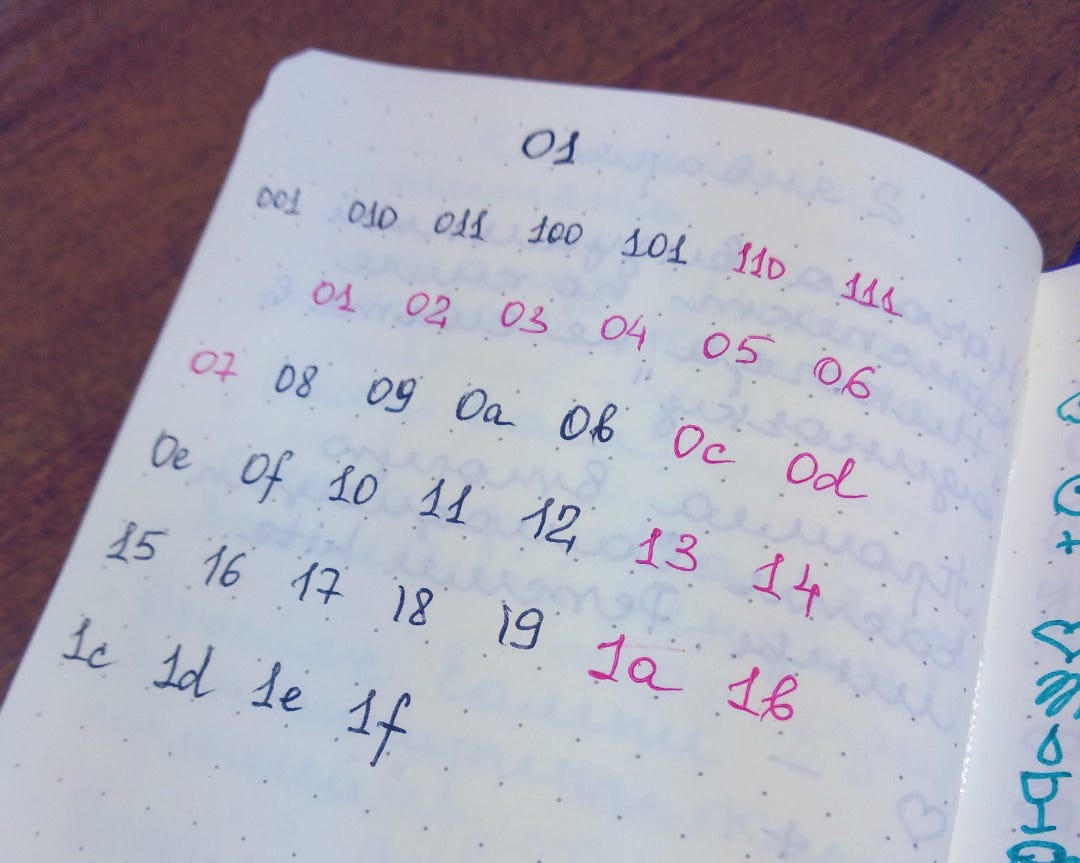 01
001 010 011 100 101 110 111
01 02 03 04 05 06
07 08 09 0a 0b 0c 0d
0e 0f 10 11 12 13 14
15 16 17 18 19 1a 1b
1c 1d 1e 1f